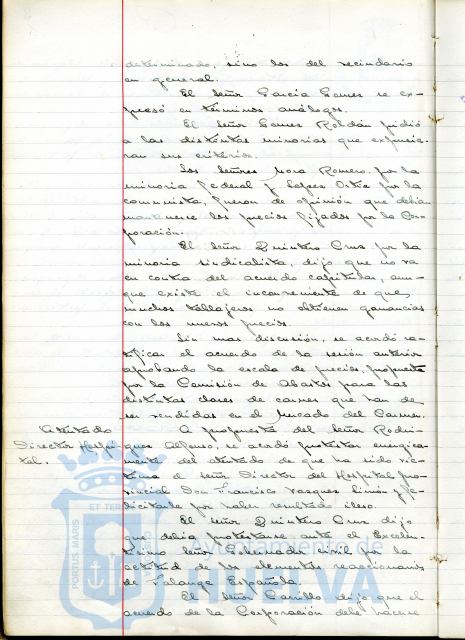 determinado, sino los del vecindario
en general.
El Señor García Gomes se ex-
presó en términos análogos.
El Señor Gomes Roldán pidió
a las distintas minorías que expusie-
ran sus criterios.
Los Señores Mora Romero, por la
minoría federal y Lopes Ortiz por la
comunista, fueron de opinión que debian
mantenerse los precios fijados por la Cor-
poración.
El Señor Quintero Cruz por la
minoria sindicalista, dijo que no va
en contra del acuerdo capitular, aun-
que existe el inconveniente de que
muchos tablajeros no obtienen ganancias
con los nuevos precios.
Sin mas discusión, se acordó ra-
tificar el acuerdo de la sesión anterior
aprobando la escala de precios, propuesta
por la Comisión de Abastos para las
distintas clases de carnes que han de
ser vendidas en el Mercado del Carmen.
Atentado
Director Hospi-
tal.
A propuesta del Señor Rodri-
gues Alfonso, se acordó protestar energica-
mente del atentado de que ha sido vic-
tima el Señor Director del Hospital pro-
vincial Don Francisco Vasques Limón y fe-
licitarle por haber resultado ileso.
El Señor Quintero Cruz dijo
que debia protestarse ante el Excelen-
tisimo Señor Gobernador civil por la
actitud de los elementos reaccionarios
de Falange Española.
El Señor Carrillo dijo que el
acuerdo de la Corporación debe hacerse
PORTUS MARIS
ET TERRAE
Ayuntamiento de
HUELVA